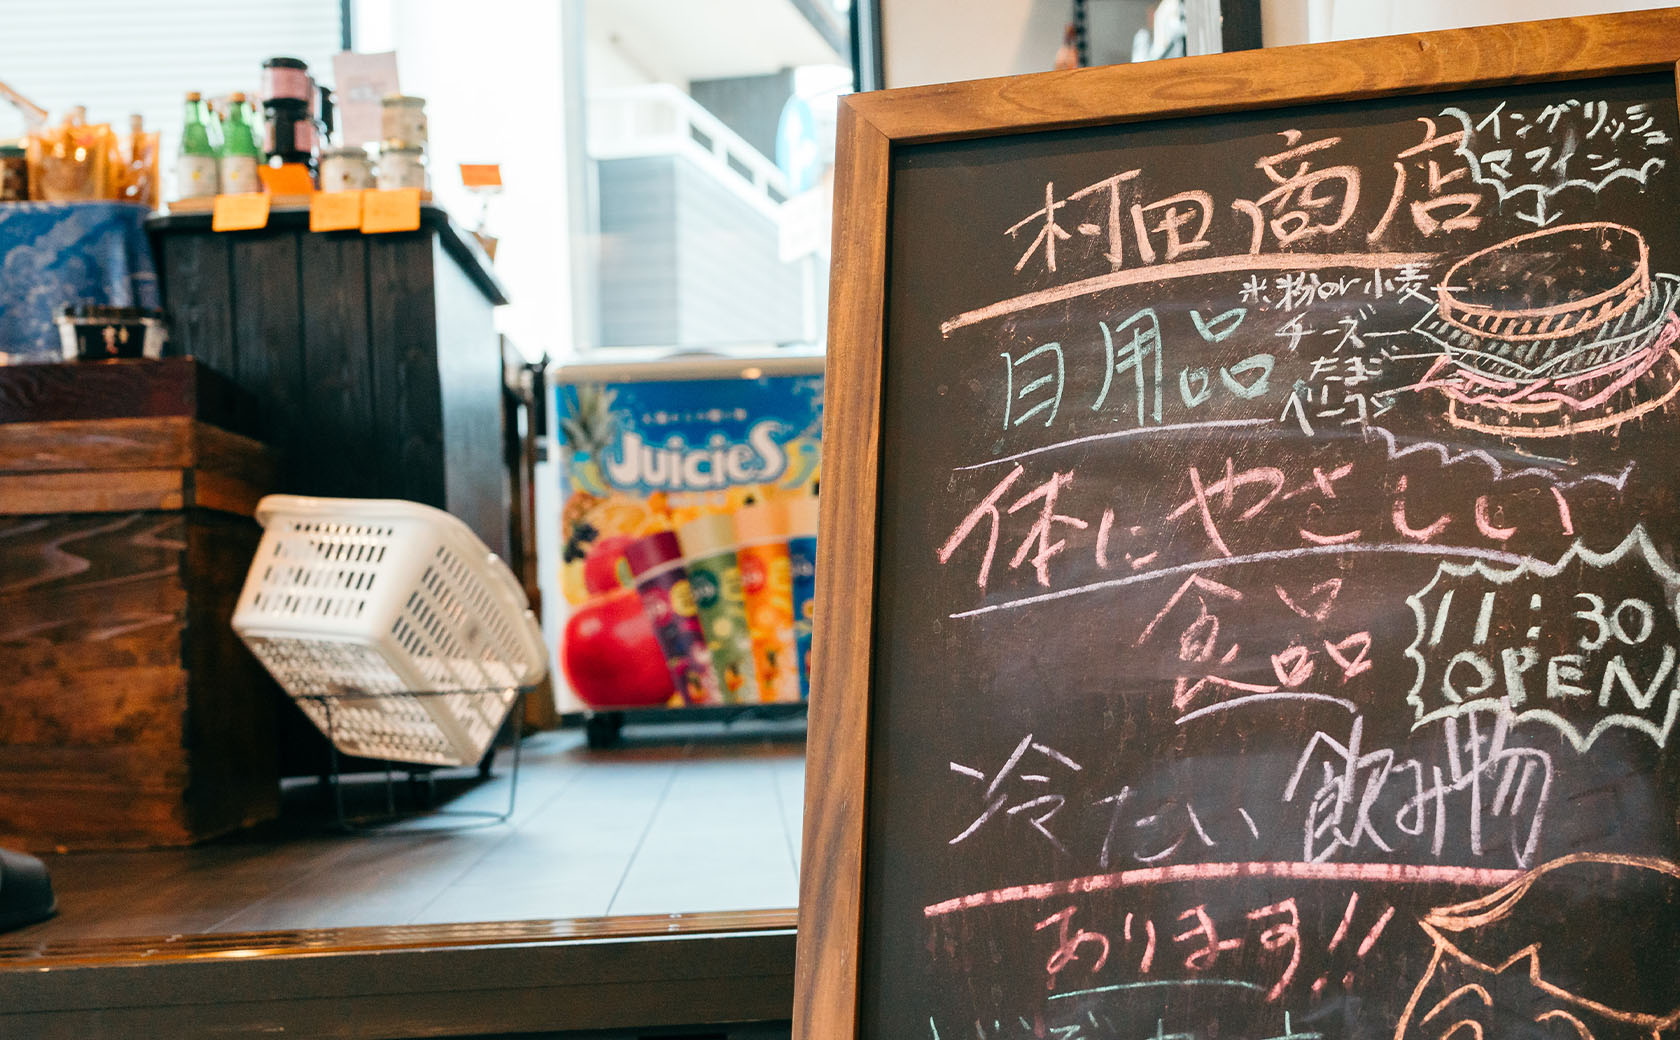 イングリッシュ
マフィン
村田商店
米粉or小麦
チーズ
たまご
ベーコン
日用品
体にやさしい
食品
11:30
OPEN
冷たい飲み物
あります!!
JuicieS